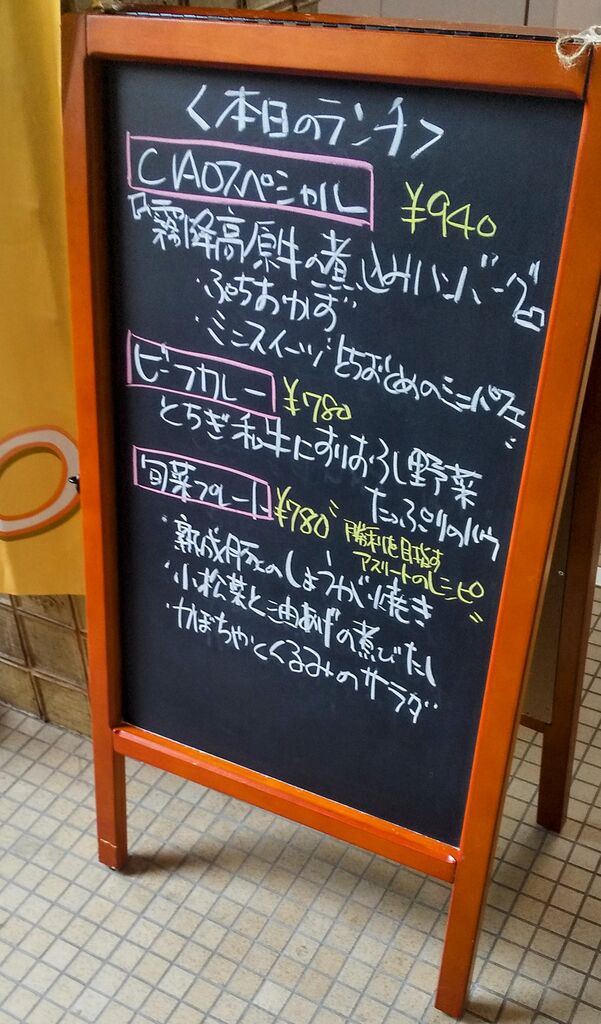 <本日のランチ>
CIAOスペシャル
¥940
『霧降高原牛の煮込みハンバーグ』
・ぷちおかず
・ミニスイーツ とちおとめのミニパフェ
ビーフカレー ¥780
とちぎ和牛にすりおろし野菜
たっぷりのルウ
旬菜プレート ¥780
"勝利を目指す
アスリートのレシピ"
・熟成豚のしょうが焼き
・小松菜と油あげの煮びたし
・かぼちゃとくるみのサラダ